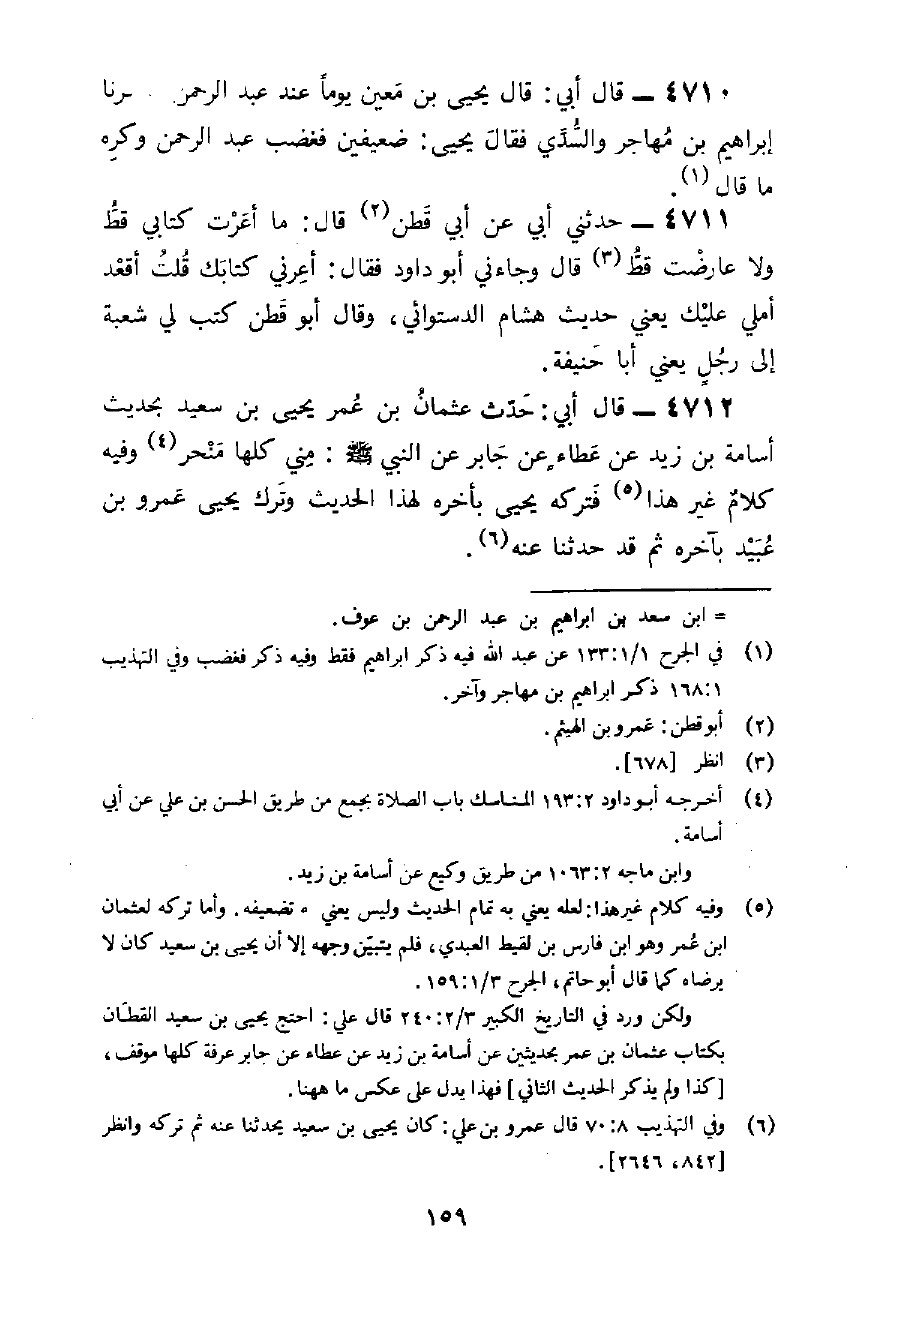 ٤٧١٠ ــ قال أبي: قال يحيى بن مَعين يوماً عند عبد الرحمن
إبراهيم بن مُهاجر والسُّدِّي فقالَ يحيى: ضعيفين فغضب عبد الرحمن وكره
ما قال(١).
٤٧١١ ــ حدثني أبي عن أبي قَطن(٢) قال: ما أعَرْت كتابي قطُّ
ولا عارضْت قطُّ(٣) قال وجاءني أبو داود فقال: أعِرني كتابَك قُلتُ أقعْد
أملي عليْك يعني حديث هشام الدستوائي، وقال أبو قَطن كتب لي شعبة
إلى رجُلٍ يعني أبا حَنيفة.
٤٧١٢ ــ قال أبي: حَدّث عثمانُ بن عُمر يحيى بن سعيد بحديث
أسامة بن زيد عن عَطاء عن جَابر عن النبي ﷺ : مِني كلها مَنْحر(٤) وفيه
كلامٌ غير هذا(٥) فَتركه يحيى بأخره لهذا الحديث وتَرك يحيى عَمرو بن
عُبَيْد بآخره ثم قد حدثنا عنه(٦).
= ابن سعد بن ابراهيم بن عبد الرحمن بن عوف.
(١) في الجرح ١٣٣:١/١ عن عبد الله فيه ذكر ابراهيم فقط وفيه ذكر فغضب وفي التهذيب
١٦٨:١ ذكر ابراهيم بن مهاجر وآخر.
(٢) أبو قطن: عَمرو بن الهيثم.
(٣) انظر [٦٧٨].
(٤) أخرجه أبو داود ١٩٣:٢ المناسك باب الصلاة بجمع من طريق الحسن بن علي عن أبي
أسامة.
وابن ماجه ١٠٦٣:٢ من طريق وكيع عن أسامة بن زيد.
(٥) وفيه كلام غير هذا: لعله يعني به تمام الحديث وليس يعني ه تضعيفه. وأما تركه لعثمان
ابن عُمر وهو ابن فارس بن لقيط العبدي، فلم يتبيّن وجهه إلا أن يحيى بن سعيد كان لا
يرضاه كما قال أبو حاتم، الجرح ١٥٩:١/٣.
ولكن ورد في التاريخ الكبير ٢٤٠:٢/٣ قال علي: احتج يحيى بن سعيد القطّان
بكتاب عثمان بن عمر بحديثين عن أسامة بن زيد عن عطاء عن جابر عرفة كلها موقف،
[كذا ولم يذكر الحديث الثاني] فهذا يدل على عكس ما ههنا.
(٦) وفي التهذيب ٧٠:٨ قال عمرو بن علي: كان يحيى بن سعيد يحدثنا عنه ثم تركه وانظر
[٨٤٢، ٢٦٤٦].
١٥٩